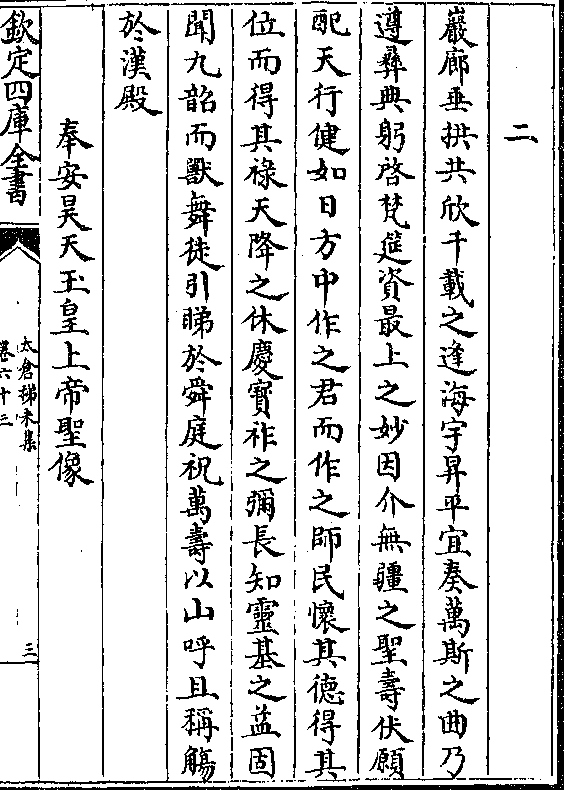 二
巖廊垂拱共欣千載之逢海宇昇平宜奏萬斯之曲乃
遵彞典躬啓梵筵資最上之妙因介無疆之聖壽伏願
配天行健如日方中作之君而作之師民懷其德得其
位而得其祿天降之休慶寳祚之彌長知靈基之益固
聞九韶而獸舞徒引睇於舜庭祝萬壽以山呼且稱觴
於漢殿
奉安昊天玉皇上帝聖像
欽定四庫全書
太倉稊米集
卷六十三
三